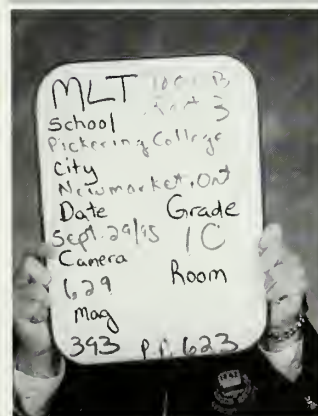 MLT
School
Pickering College
City
Newmarket, Ont
Date Grade
Sept. 29/95 1C
Camera
629 Room
Mag
393 623